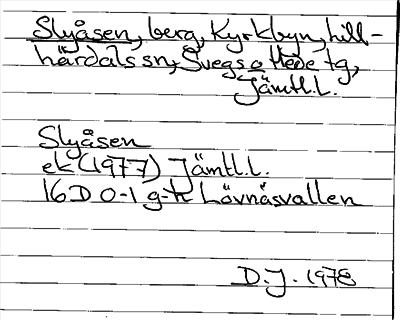 Slyåsen, berg, Kyrkbyn, Lill-
härdals sn, Svegs o Hede tg,
Jämtl.L.
Slyåsen
ek (1977) Jämtl.L.
16D 0-1 g-h Lövnäsvallen
D.J. 1978